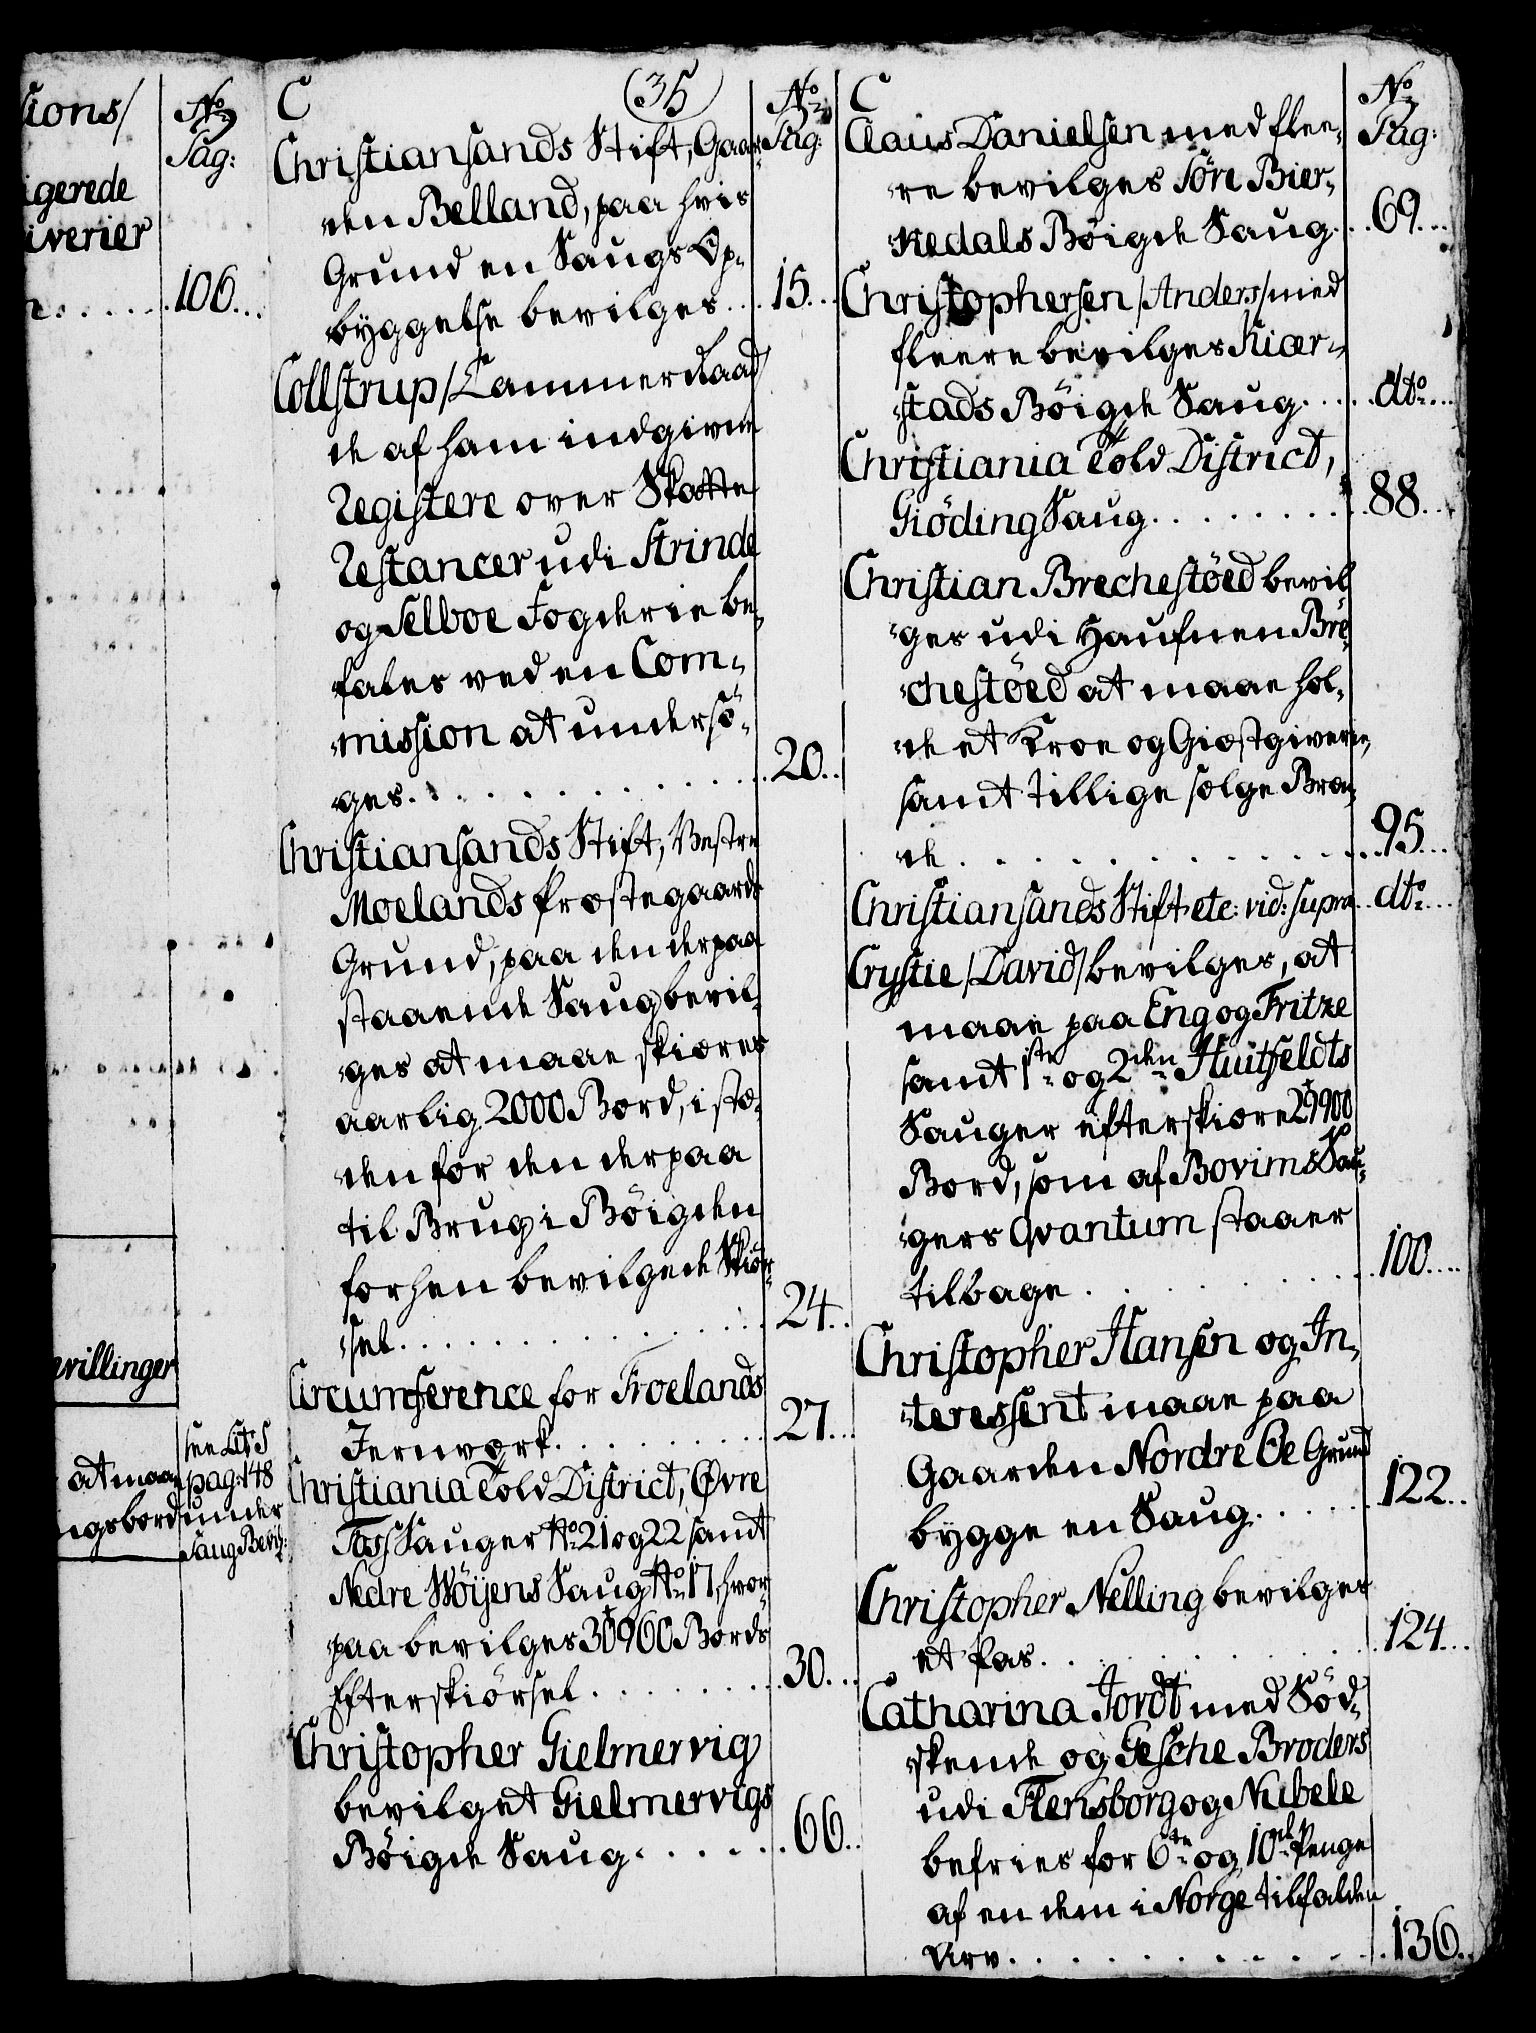 tions/
No
Pag:
igerede
iverier
106...
evillinger
at maa
ngsbord
see Litr S
pag: 148
under
Saug Bevil:
C
(35)
No
Pag:
Christiansands Stift, Gaar-
den Belland, paa hvis
Grund en Saugs Op-
byggelse bevilges... 15...
Collstrup/Cammerraad/
de af ham indgivne
Registere over Skatte
Restancer udi Strinde
og Selboe Fogderie be-
fales ved en Com-
mission at undersö-
ges. . . . . 20..
Christiansands Stift, Vestre
Moelands Præstegaards
Grund, paa den derpaa
staaende Saug bevil-
ges at maae skiæres
aarlig 2000 Bord, i stæ-
den for den derpaa
til Brug i Böigden
forhen bevilgede Skiör-
sel. . . . . 24..
Circumference for Froelands
Jernværk. . . . . 27...
Christiania Told District, Øvre
Foss Sauger No 21 og 22 samt
Nedre Wöijens Saug No 17, hvor-
paa bevilges 30960 Bords
Efterskiörsel. . . . . 30...
Christopher Gielmervig
bevilget Gielmervigs
Böigde Saug. . . . . 66..
C
No
Pag:
Claus Danielsen med flee-
re bevilges Söre Bier-
kedals Böigde Saug... 69...
Christophersen/Anders/med
fleere bevilges Kiær-
stads Böigde Saug. . . . . dto...
Christiania Told District,
Giöding Saug. . . . . 88..
Christian Brechestöed bevil
ges udi Haufnen Bre-
chestöed at maae hol-
de et Kroe og Giæstgiverie,
samt tillige sælge Bræn-
de. . . . . 95...
Christiansands Stift etc: vid: supra.. dto...
Crystie/David/bevilges, at
maae paa Eng og Fritze
samt 1ste og 2den Huitfeldts
Sauger efterskiære 29900
Bord, som af Bovims Sau-
gers Qvantum staaer
tilbage. . . . . 100...
Christopher Hansen og In-
teressent maae paa
Gaarden Nordre Oe Grund
bygge en Saug. . . . . 122..
Christopher Nelling bevilges
et Pas. . . . . 124...
Catharina Jordt med Söd-
skende og Gesche Broders
udi Flensborg og Nubele
befries for 6te og 10de Penge
af en dem i Norge tilfalden
Arv. . . . . 136..